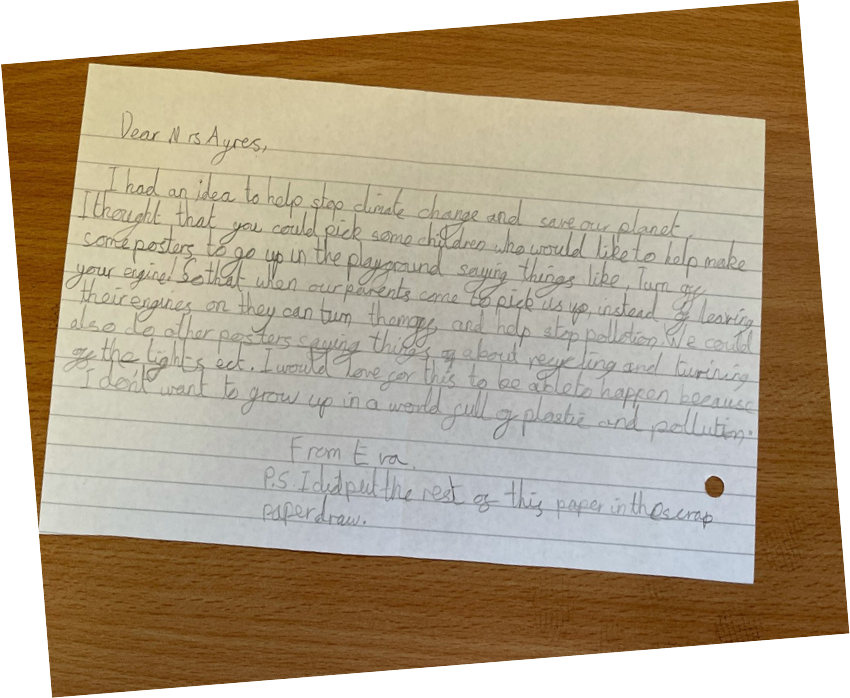 Dear Mrs Ayres,
I had an idea to help stop climate change and save our planet.
I thought that you could pick some children who would like to help make
some posters to go up in the playground saying things like, Turn off
your engine! So that when our parents come to pick us up, instead of leaving
their engines on they can turn them off, and help stop pollotion. We could
also do other posters saying things of about recycling and turining
off the lights ect. I would love for this to be able to happen because
I don't want to grow up in a world full of plastic and pollution.
From Eva.
P.S. I did put the rest of this paper in the scrap
paper draw.